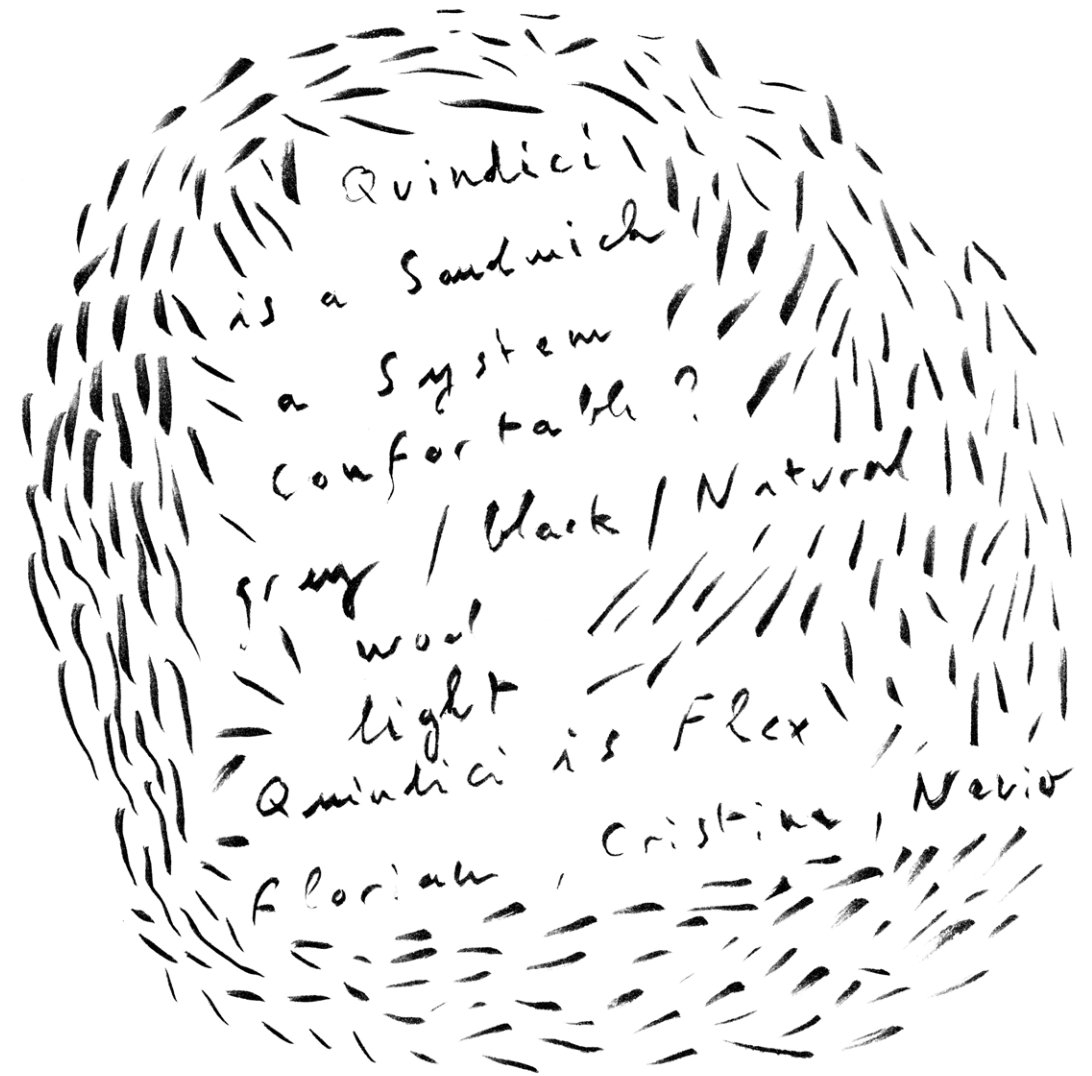 Quindici
is a Sandwich
a System
Confortable ?
grey / black / Natural
wool
light
Quindici is Flex
Florian , Cristina , Nevio